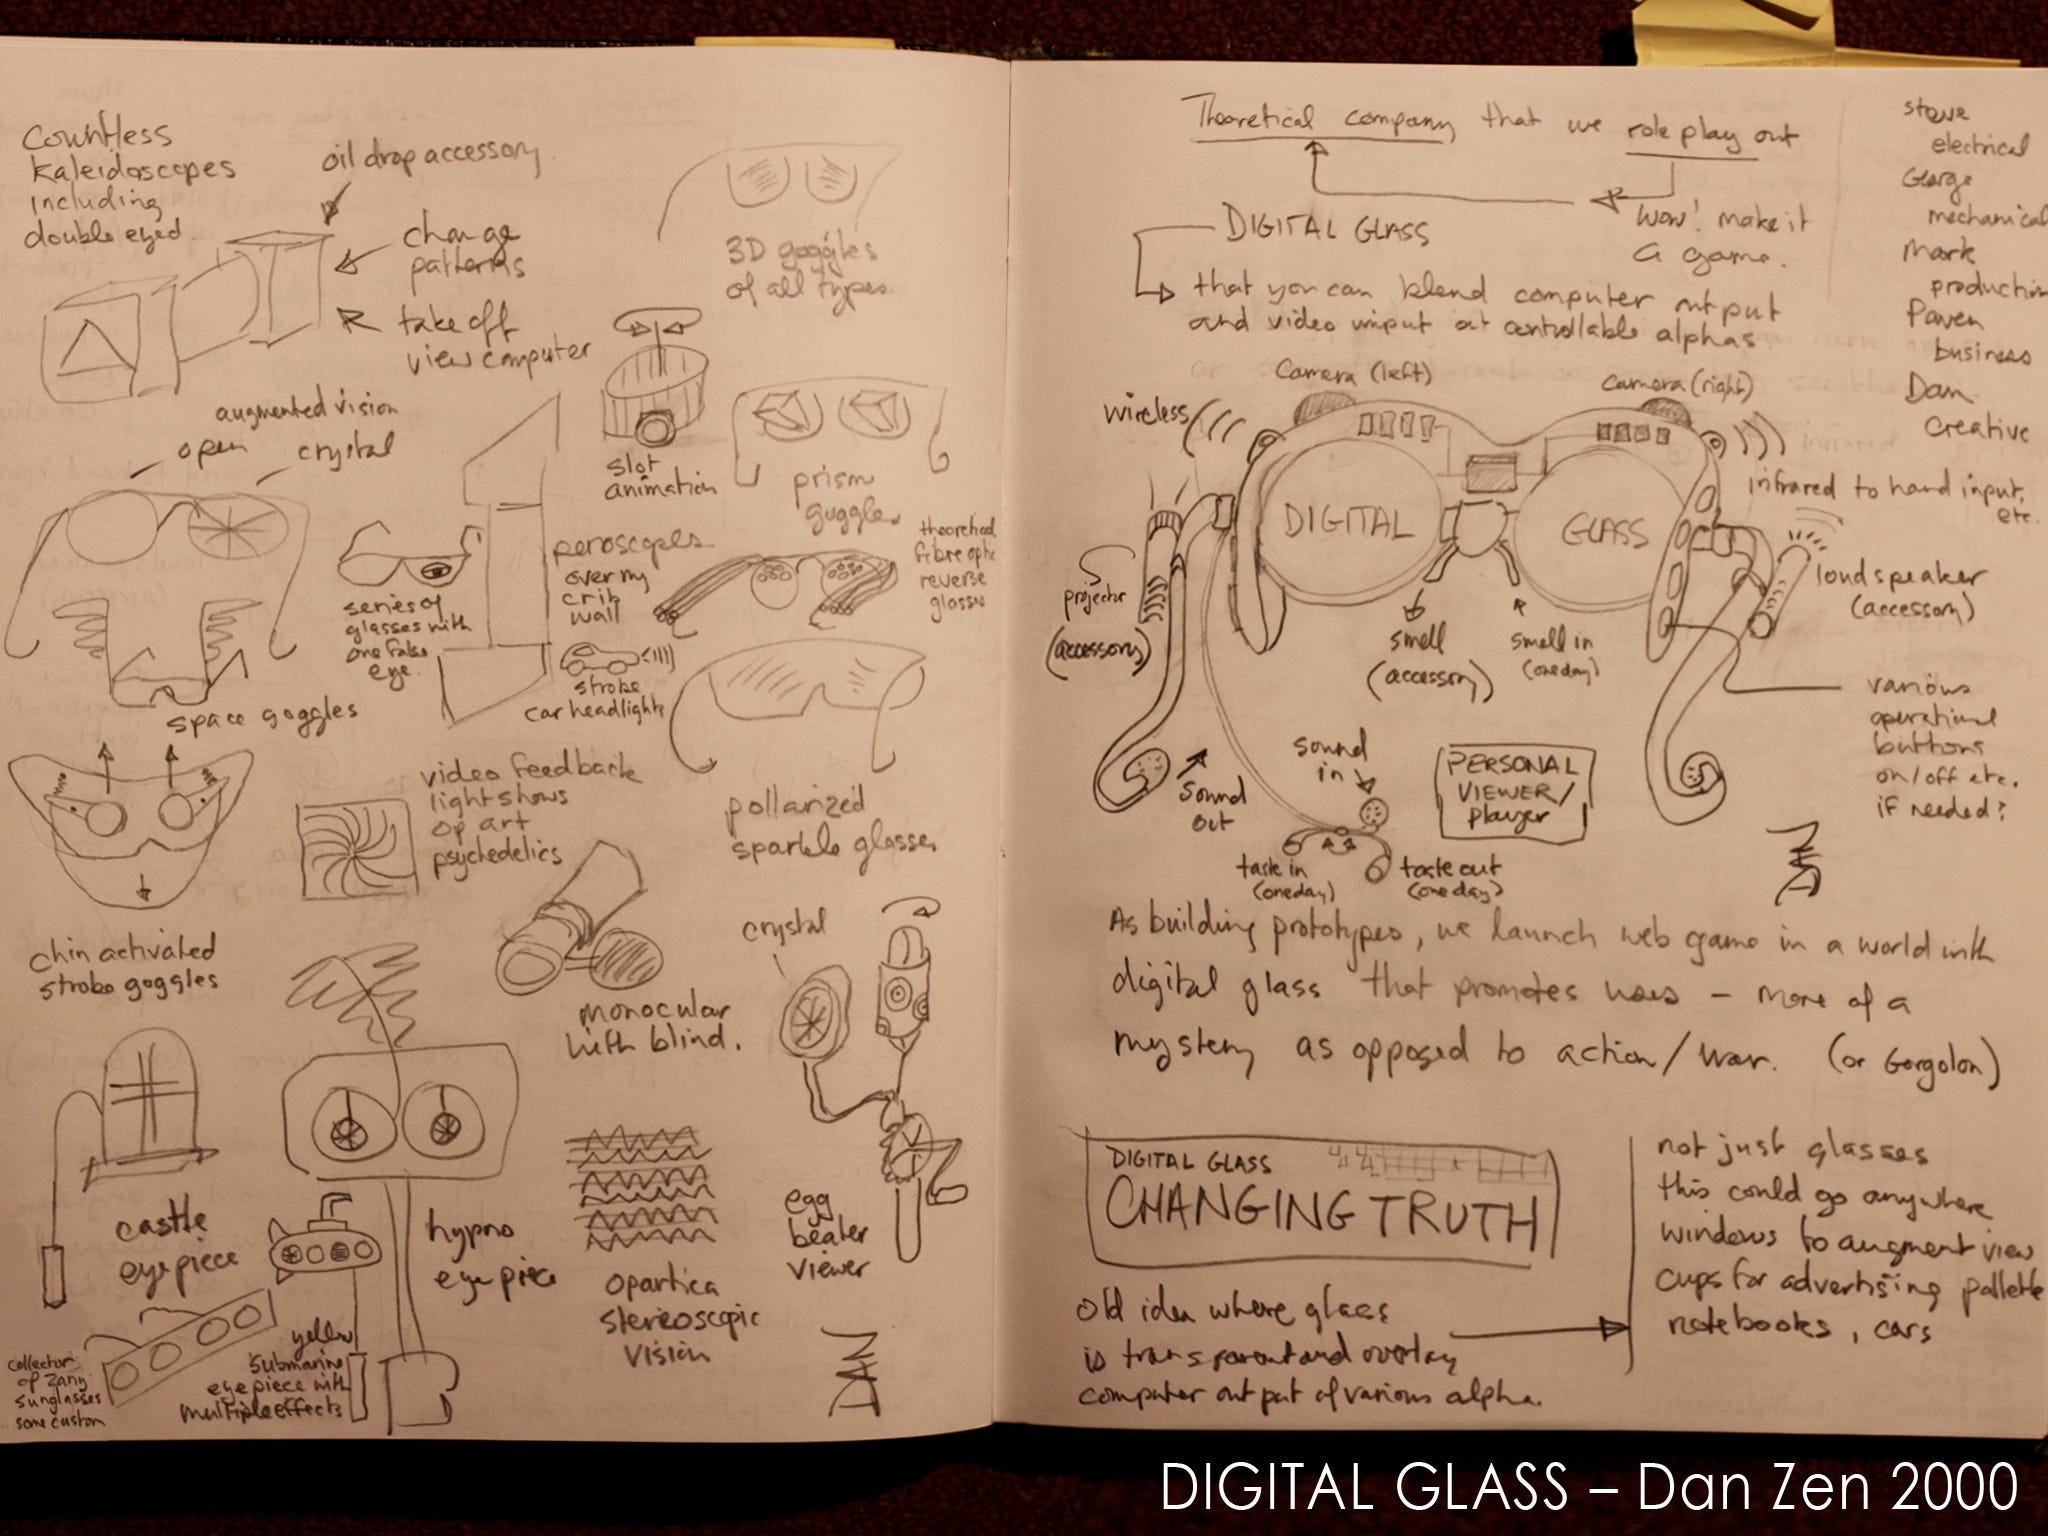 Countless
kaleidoscopes
including
double eyed.
oil drop accessory.
change
patterns
take off
view computer
3D goggles
of all types.
augmented vision
open
crystal
slot
animation
prism
goggles
space goggles
series of
glasses with
one fake
eye.
peroscopes
over my
crib
wall
strobe
car headlights
theoretical
fibre optic
reverse
glasses
pollarized
sparkle glasses
chin activated
strobe goggles
video feedback
light shows
op art
psychedelics
monocular
with blind.
crystal
castle
eyepiece
hypno
eye piece
opartica
stereoscopic
vision
egg
beater
viewer
collector
of zany
sunglasses
some custom
yellow
submarine
eyepiece with
multiple effects
DAN
Theoretical company that we role play out
Wow! make it
a game.
DIGITAL GLASS
that you can blend computer output
and video input at controllable alphas
steve
electrical
George
mechanical
Mark
production
Paven
business
Dan
Creative
camera (left)
camera (right)
wireless
infrared to hand input,
etc.
DIGITAL
GLASS
projector
(accessory)
loudspeaker
(accessory)
smell
(accessory)
smell in
(one day)
various
operational
buttons
on/off etc.
if needed?
sound
in
sound
out
PERSONAL
VIEWER/
player
taste in
(one day)
taste out
(one day)
DAN
As building prototypes, we launch web game in a world with
digital glass that promotes uses – more of a
mystery as opposed to action/war. (or Gorgolon)
DIGITAL GLASS
CHANGING TRUTH
old idea where glass
is transparent and overlay
computer output of various alpha.
not just glasses
this could go anywhere
windows to augment view
cups for advertising pallette
notebooks, cars
DIGITAL GLASS – Dan Zen 2000